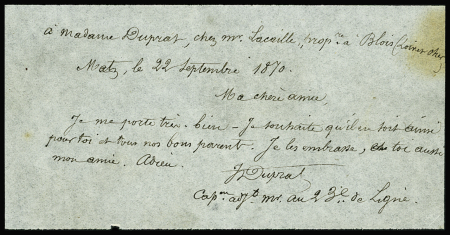 à Madame Duprat, chez Mr. Lacaille, prop.re à Blois (Loir et Cher)
Metz, le 22 Septembre 1870.
Ma chère amie,
Je me porte très-bien - Je souhaite qu'il en soit ainsi
pour toi et tous nos bons parent. Je les embrasse, et toi aussi
mon amie. Adieu.
J Duprat
Cap.ne adj.t m.r au 23e. de Ligne